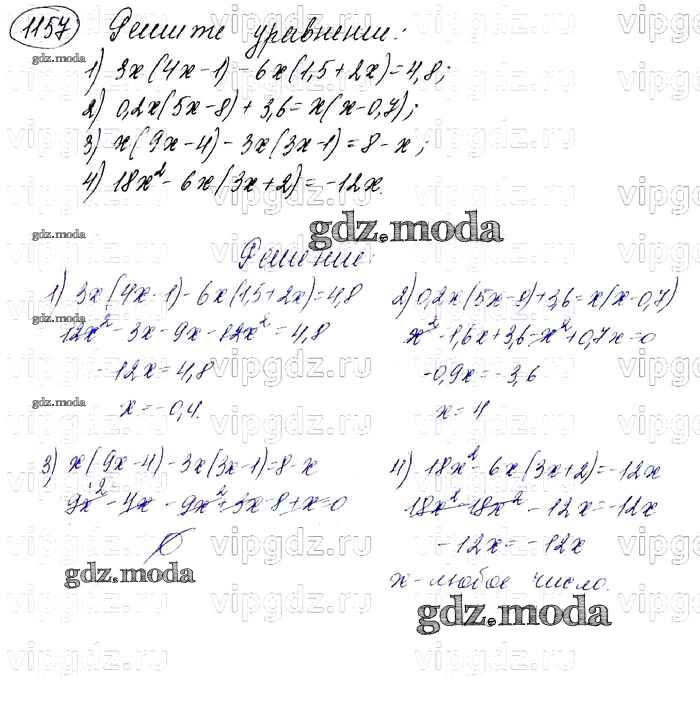 1157 Решите уравнение:
1) 3x(4x-1)-6x(1,5+2x)=4,8;
2) 0,2x(5x-8)+3,6=x(x-0,7);
3) x(9x-4)-3x(3x-1)=8-x;
4) 18x²-6x(3x+2)=-12x.
gdz.moda
Решение:
1) 3x(4x-1)-6x(1,5+2x)=4,8
12x²-3x-9x-12x²=4,8
-12x=4,8
x=-0,4.
2) 0,2x(5x-8)+3,6=x(x-0,7)
x²-1,6x+3,6-x²+0,7x=0
-0,9x=-3,6
x=4
3) x(9x-4)-3x(3x-1)=8-x
9x²-4x-9x²+3x-8+x=0
∅
4) 18x²-6x(3x+2)=-12x
18x²-18x²-12x=-12x
-12x=-12x
x-любое число.
gdz.moda
gdz.moda
gdz.moda
gdz.moda
gdz.moda
gdz.moda
vipgdz.ru